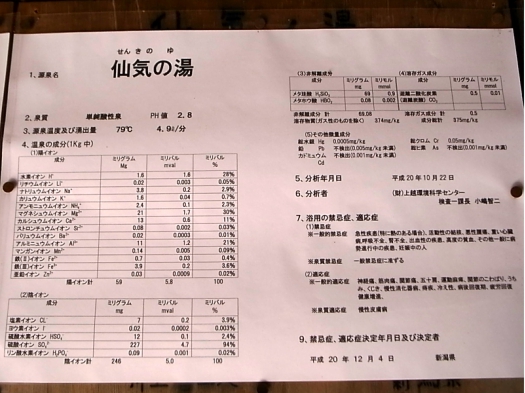 せんきの ゆ
1、源泉名 仙気の湯
2、泉質 単純酸性泉 PH 値 2.8
3、源泉温度及び湧出量 79℃ 4.9ℓ/分
4、温泉の成分(1Kg 中)
(1)陽イオン
成分 ミリグラム Mg ミリバル mval ミリバル %
水素イオン H⁺ 1.6 1.6 28%
リチウムイオン Li⁺ 0.02 0.003 0.05%
ナトリウムイオン Na⁺ 3.8 0.2 2.9%
カリウムイオン K⁺ 1.6 0.04 0.7%
アンモニウムイオン NH₄⁺ 2.4 0.1 2.3%
マグネシウムイオン Mg²⁺ 21 1.7 30%
カルシウムイオン Ca²⁺ 13 0.6 11%
ストロンチウムイオン Sr²⁺ 0.08 0.002 0.03%
バリウムイオン Ba²⁺ 0.02 0.0003 0.01%
アルミニウムイオン Al³⁺ 11 1.2 21%
マンガンイオン Mn²⁺ 0.14 0.005 0.09%
鉄(Ⅱ)イオン Fe²⁺ 0.7 0.03 0.4%
鉄(Ⅲ)イオン Fe³⁺ 3.9 0.2 3.6%
亜鉛イオン Zn²⁺ 0.03 0.0009 0.02%
陽イオン計 59 5.8 100
(2)陰イオン
成分 ミリグラム mg ミリバル mval ミリバル %
塩素イオン CL⁻ 7 0.2 3.9%
ヨウ素イオン I⁻ 0.02 0.0002 0.003%
硫酸水素イオン HSO₄⁻ 12 0.1 2.4%
硫酸イオン SO₄²⁻ 227 4.7 94%
リン酸水素イオン H₂PO₄⁻ 0.09 0.001 0.02%
陰イオン計 246 5.0 100
(3)非解離成分 ミリグラム mg ミリモル mmol
メタ珪酸 H₂SiO₃ 69 0.9
メタホウ酸 HBO₂ 0.08 0.002
非解離成分 計 69.08
溶存物質(ガス性のものを除く) 374mg/kg
(4)溶存ガス成分 ミリグラム mg ミリモル mmol
遊離二酸化炭素 (遊離炭酸) CO₂ 0.5 0.01
溶存ガス成分 計 0.5
成分総計 375mg/kg
(5)その他微量成分
総水銀 Hg 0.0005mg/kg 総クロム Cr 0.05mg/kg
鉛 Pb 不検出(0.005mg/kg 未満) 総ヒ素 As 不検出(0.005mg/kg 未満)
カドミウム Cd 不検出(mg/kg 未満)
5、分析年月日 平成20年10月22日
6、分析者 (財)上越環境科学センター
検査一課長 小嶋智二
7、浴用の禁忌症、適応症
(1)禁忌症
※一般的禁忌症 急性疾患(特に熱のある場合)、活動性の結核、悪性腫瘍、重い心臓病,呼吸不全、腎不全、出血性の疾患、高度の貧血、その他一般に病勢進行中の疾患、妊娠中の人
※泉質禁忌症 一般禁忌症に準ずる
(2)適応症
※一般的適応症 神経痛、筋肉痛、関節痛、五十肩、運動麻痺、関節のこわばり、うちみ、くじき、慢性消化器病、痔疾、冷え性、病後回復期、疲労回復、健康増進、
※泉質適応症 慢性皮膚病
9、禁忌症、適応症決定年月日及び決定者
平成 20 年 12 月 4 日 新潟県